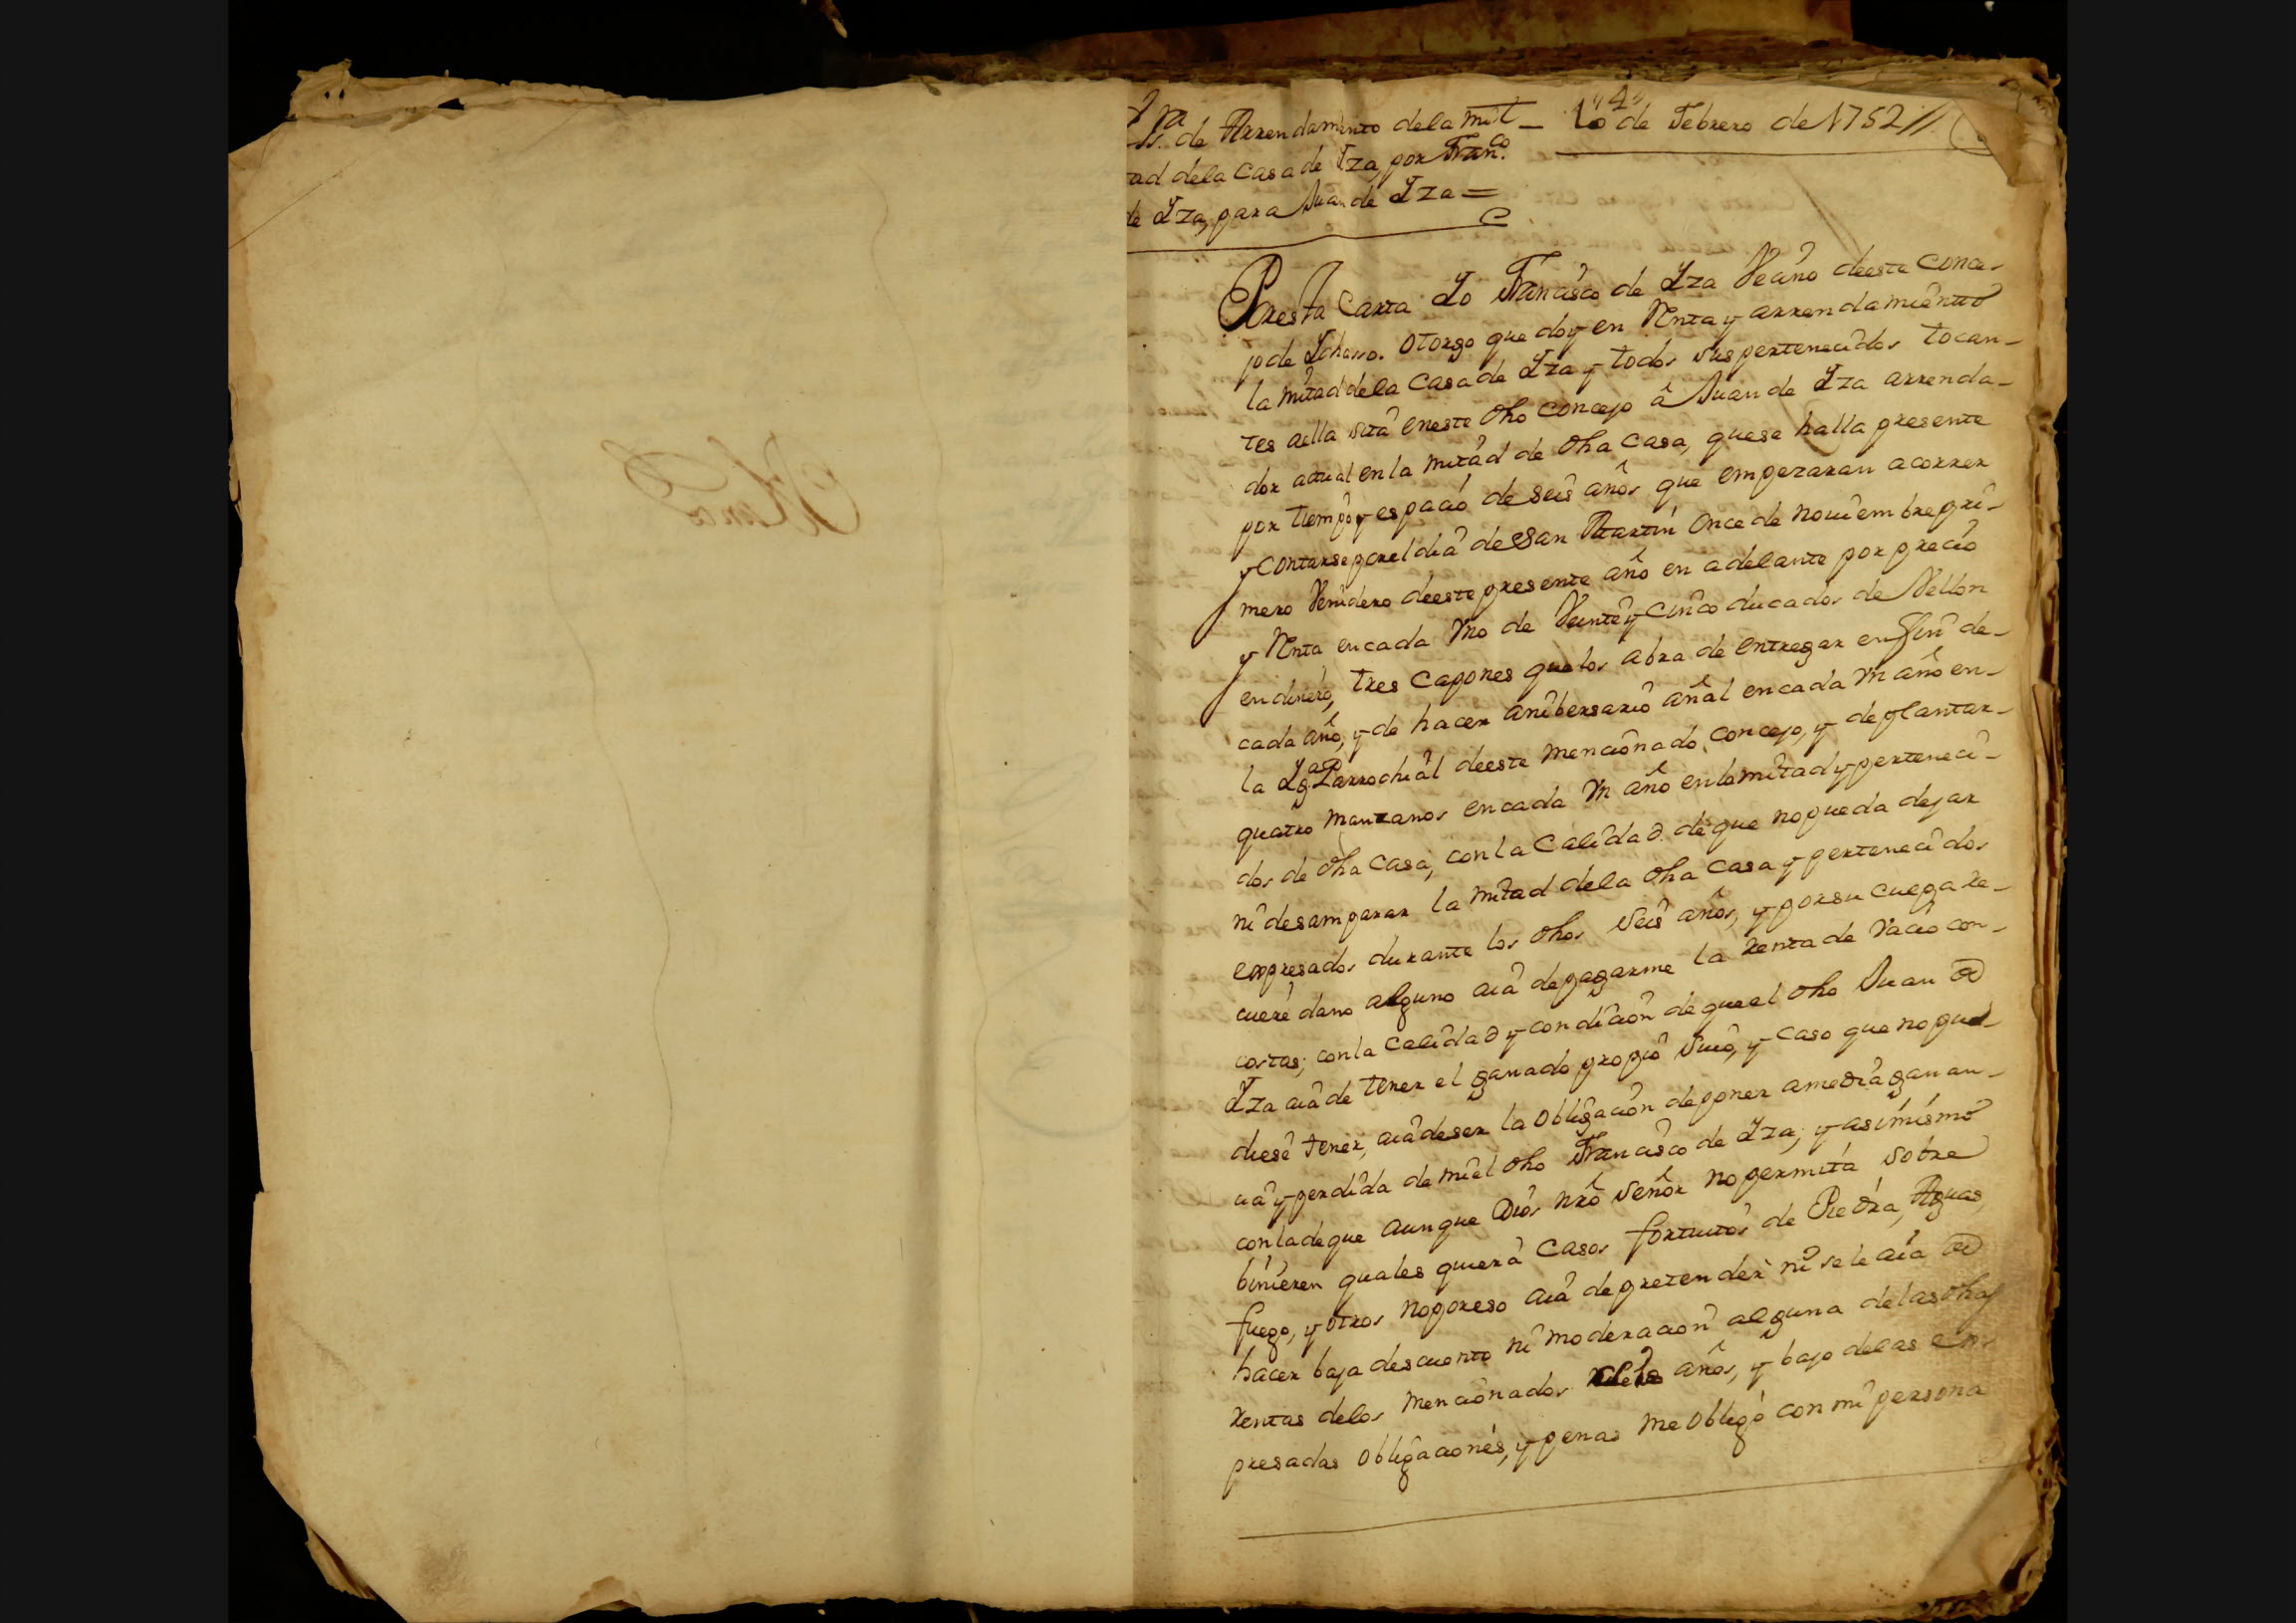 de Arrendamiento dela mit
tad dela Casa de Yza, por Franco.
de Yza, para Juan de Yza =
"4"
10 de Febrero de 1752 //
Por esta Carta Yo Francisco de Yza Vecino deeste Conce-
jo de otorgo que doy en Renta y arrendamiento
la mitad dela Casa de Yza y todos sus pertenecidos tocan-
tes aella sita eneste dho concejo â Juan de Yza arrenda-
dor actual en la mitad de dha Casa, quese halla presente
por tiempo y espacio de seis años que empezaran acorrer
y Contarse porel dia de San Martin Once de nouiembre pri-
mero Venidero deeste presente año en adelante por precio
y Renta encada Vno de Veinte y cinco ducados de Vellon
en dinero, tres Capones que los abra de entregar en fin de-
cada año, y de hacer anibersario añal encada Vn año en-
la Yga. Parrochial deeste mencionado Concejo, y de plantar-
quatro manzanos encada Vn año enlamitad y perteneci-
dos de dha Casa, con la Calidad de que nopueda dejar
ni desamparar la mitad dela dha Casa y pertenecidos
expresados durante los dhos seis años, y porsu cuenta
dano alguno aia depagarme la renta de Vacio con-
costas; conla Calidad y condicion de queel dho Juan de
Yza aia de tener el ganado propio suio, y Caso que nopu-
diese tener, aia deser la Obligacion deponer amedia ganan-
cia y perdida de miel dho Francisco de Yza; y asimismo
conlade que aunque Dios nro señor nopermita sobre
binieren quales quiera Casos fortuitos de Piedra, Aguas
fuego, y otros noporeso aia depretender ni se le aia de
hacer baja descuento ni moderacion alguna delas dhas
rentas delos mencionados seis años, y bajo delas ex-
presadas obligaciones, y penas me obligo con mi persona